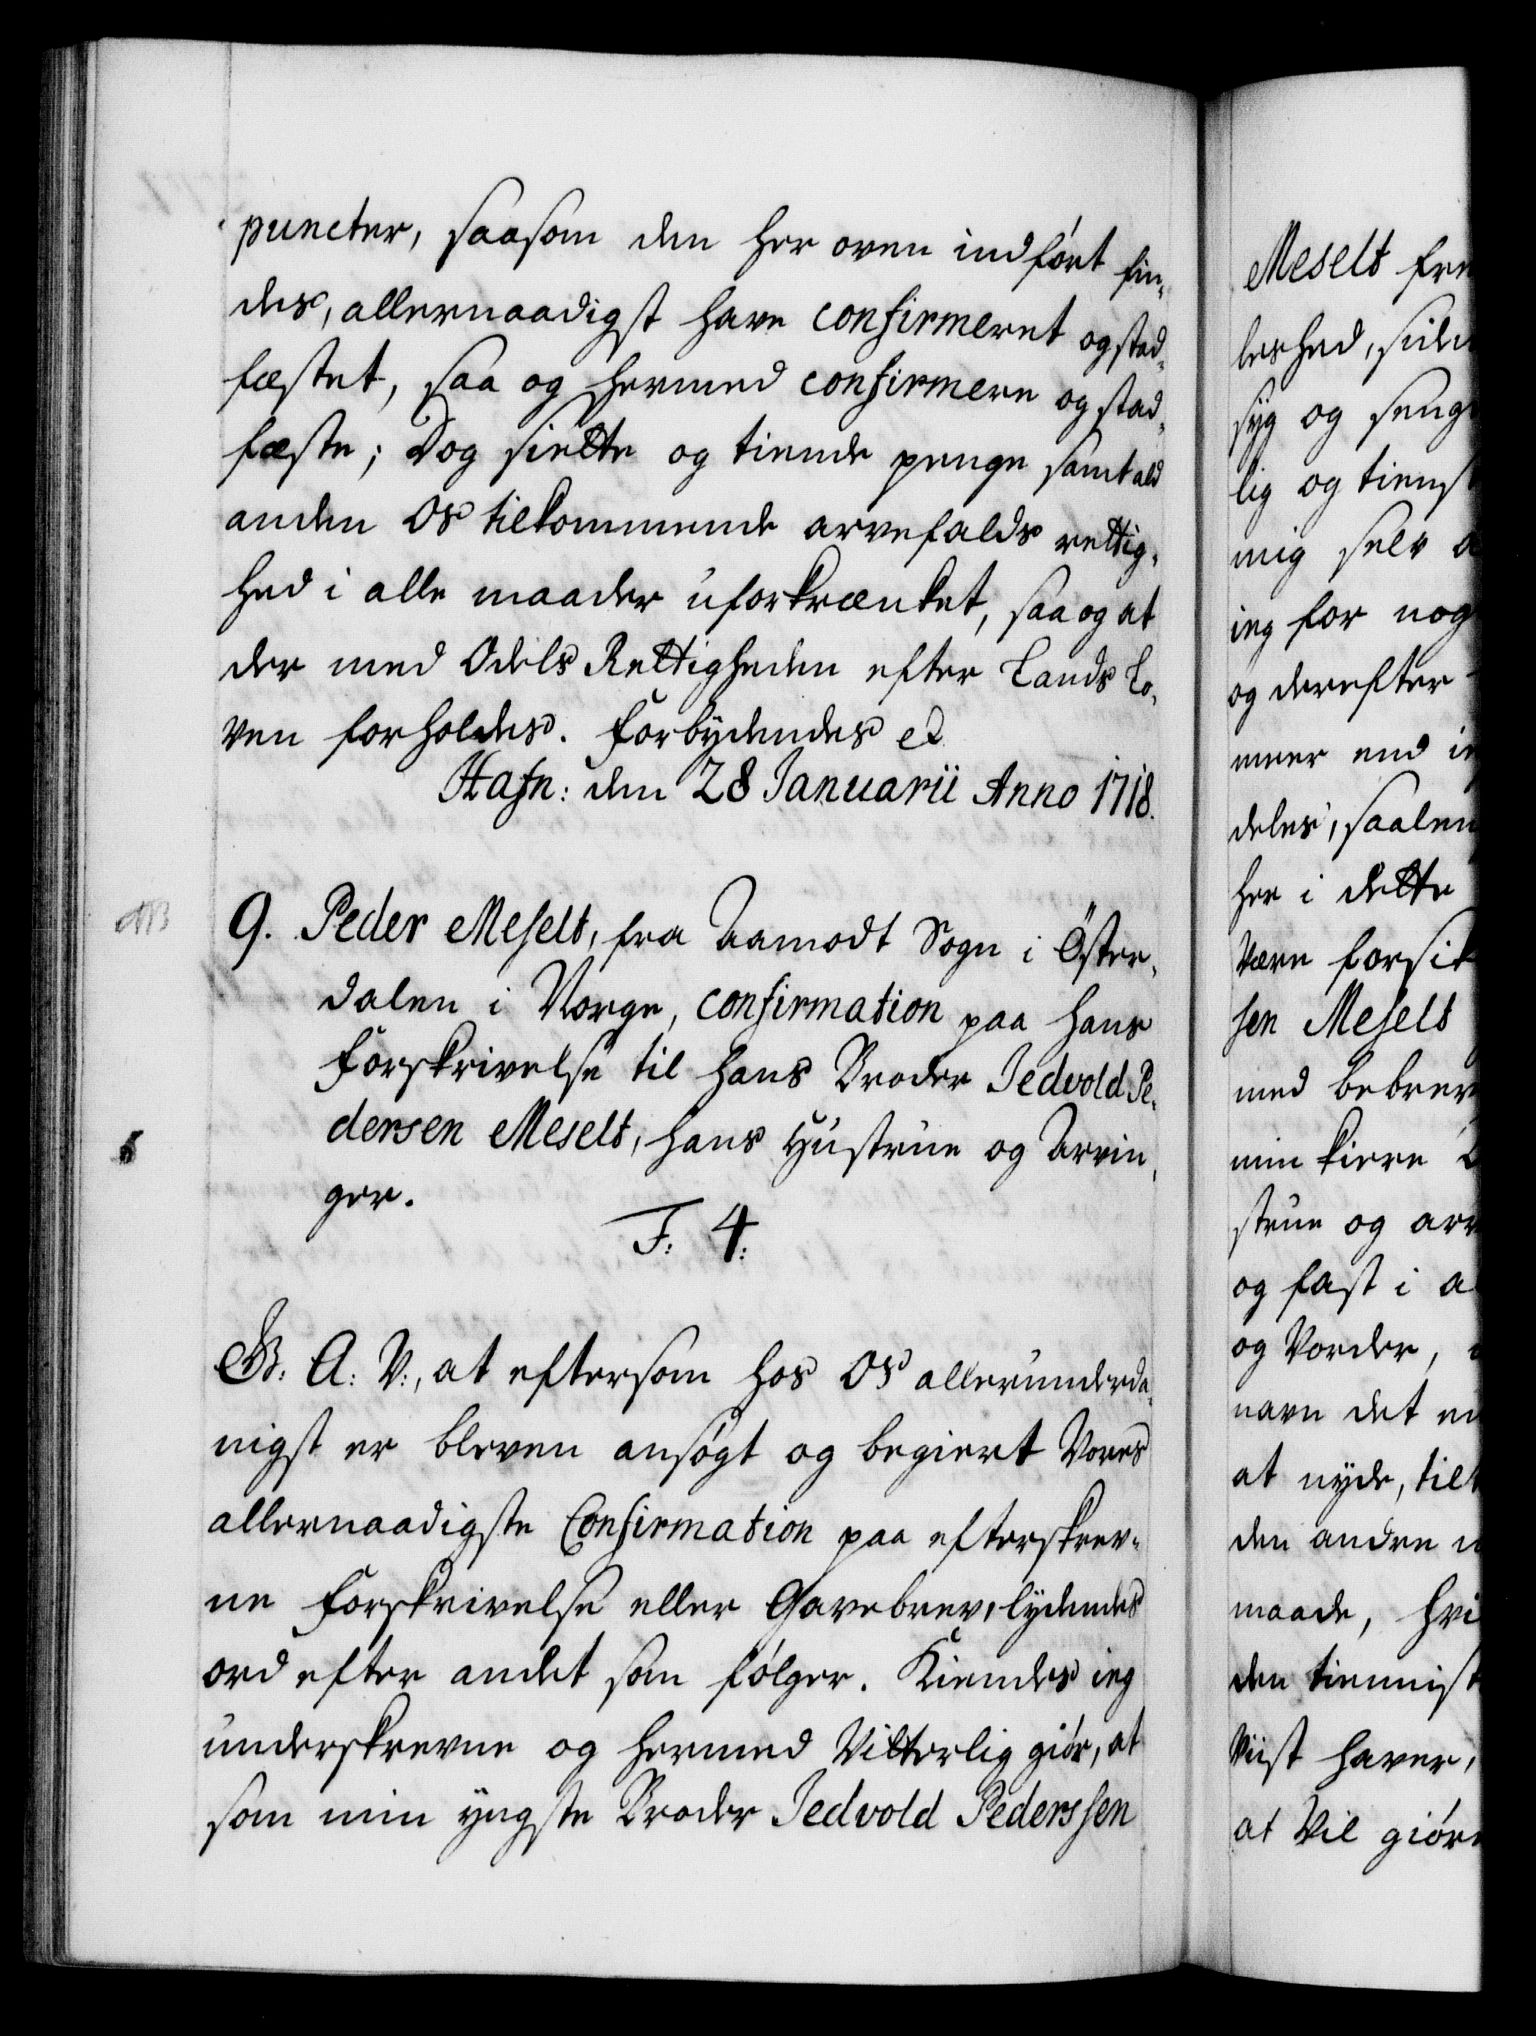 puncter, saasom den her oven indført fin-
des, allernaadigst have confirmeret og stad-
fæstet, saa og hermed confirmere og stad-
fæste; Dog siette og tiende penge samt ald
anden Os tilkommende arvefalds rettig-
hed i alle maader uforkrænket, saa og at
der med Odels Rettigheden efter Lands Lo-
ven forholdes. Forbydendes et
Hafn: den 28 Januarii Anno 1718.
9. Peder Meselt, fra Aamodt Sogn i Öster-
dalen i Norge, confirmation paa hans
Forskrivelse til hans Broder Jedvold Pe-
dersen Meselt, hans Hustrue og Arvin-
ger.
F: 4:
G: A: V:, at eftersom hos Os allerunderda-
nigst er bleven ansøgt og begiert Vores
allernaadigste Confirmation paa efterskrev-
ne Forskrivelse eller Gavebrev, lydendes
ord efter andet som følger. Kiendes ieg
underskrevne og hermed Vitterlig giör, at
som min yngste Broder Jedvold Pederssen
Meselt
leshed,
syg og
lig og
mig selv
ieg for nog
og derefter
meer end
deles,
her i dette
Være
sen Meselt
med
min kiere
strue og
og fast i
og Vorder,
navn det
at nyde,
den andre
maade,
den
Viist haver,
at Vil